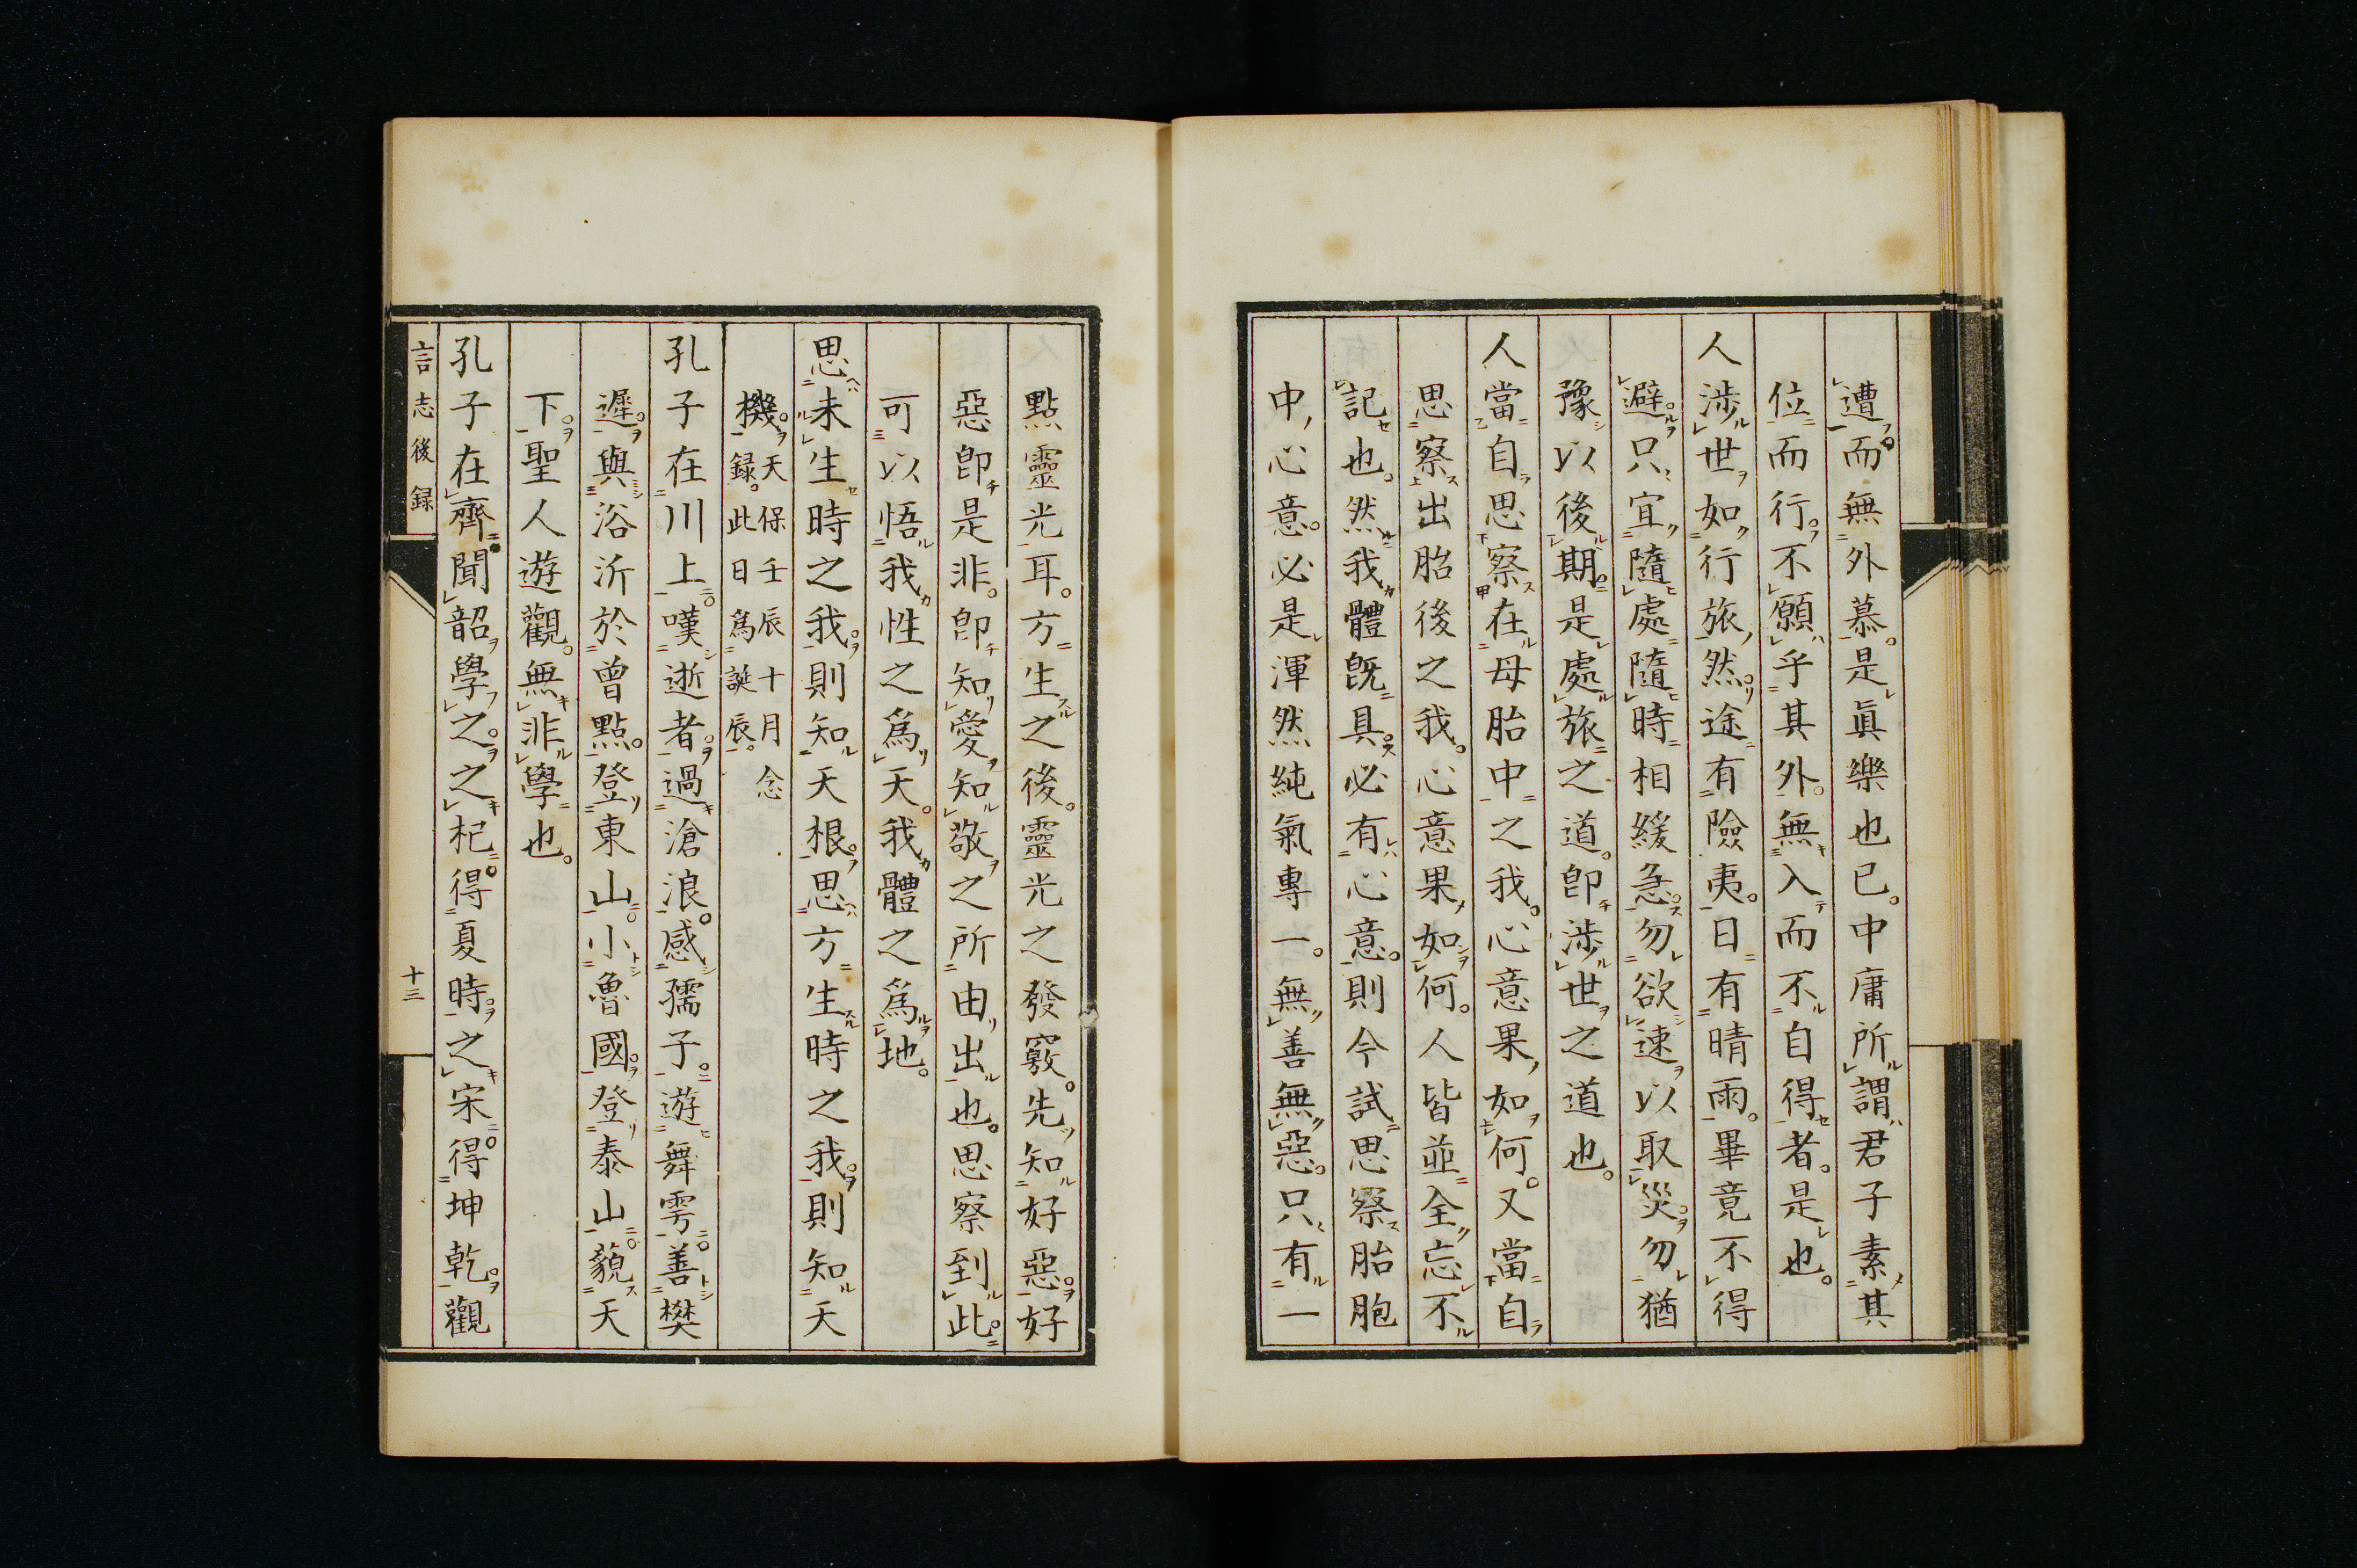 遭而無外慕。是眞樂也已。中庸所謂君子素其
位而行。不願乎其外。無入而不自得者。是也。
人涉世如行旅。然途有險夷。日有晴雨。畢竟不得
避。只宜隨處隨時相緩急。勿欲速以取災。勿猶
豫以後期。是處旅之道。卽涉世之道也。
人當自思察在母胎中之我。心意果如何。又當自
思察出胎後之我。心意果如何。人皆並全忘不
記也。然我體旣具。必有心意。則今試思察胎胞
中心意。必是渾然純氣專一。無善無惡。只有一
點靈光耳。方生之後。靈光之發竅。先知好惡。好
惡卽是非。卽知愛知敬之所由出也。思察到此。
可以悟我性之爲天。我體之爲地。
思未生時之我。則知天根。思方生時之我。則知天
機。天保壬辰十月念
錄。此日爲誕辰。
孔子在川上。嘆逝者。過滄浪。感孺子。遊舞雩。善樊
遲。與浴沂於曾點。登東山。小魯國。登泰山。藐天
下。聖人遊觀。無非學也。
孔子在齊。聞韶學之。之杞。得夏時。之宋。得坤乾。觀
言志後録
十三